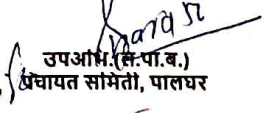 उपअभि.(स.पा.ब.)
पंचायत समिती, पालघर